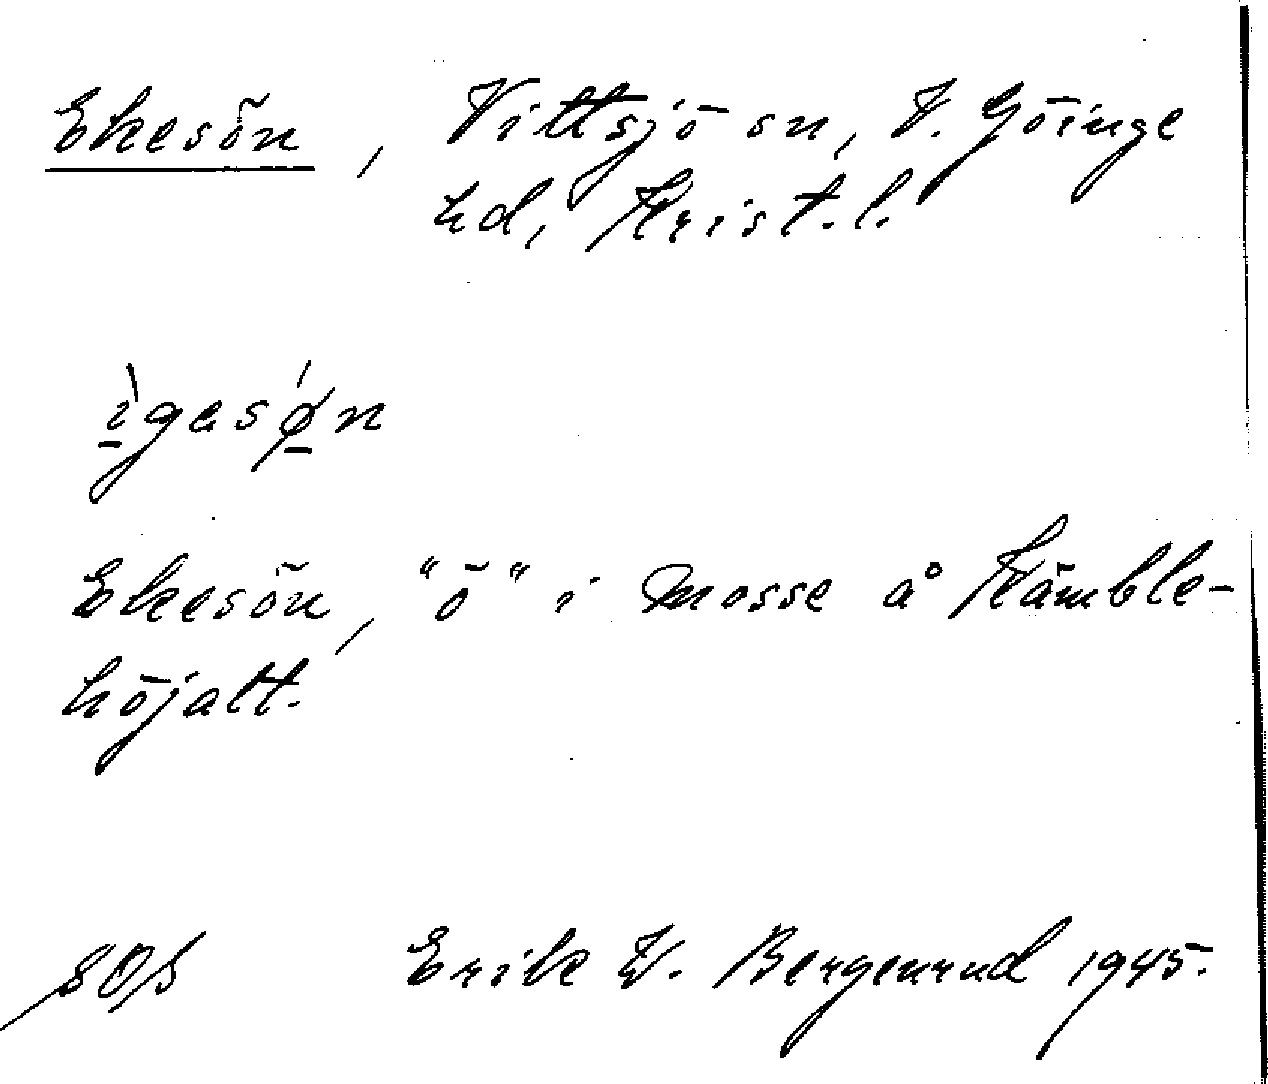 Ekesön, Vittsjö sn, V. Göinge
hd, Krist. l.
ìgesǿn
Ekesön, "ö" i mosse å Kämble-
höjalt.
SOS Erik W. Bergenrud 1945.